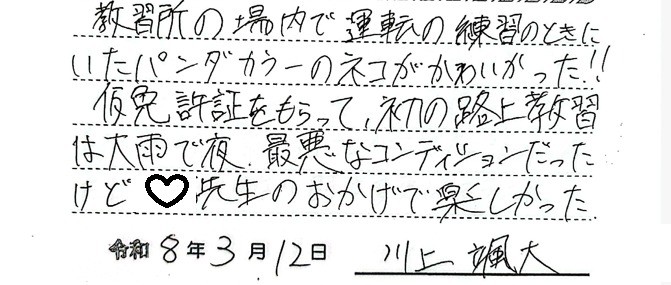 教習所の場内で運転の練習のときに
いたパンダカラーのネコがかわいかった!!
仮免許証をもらって、初の路上教習
は大雨で夜、最悪なコンディションだった
けど♡先生のおかげで楽しかった。
令和8年3月12日 川上颯大